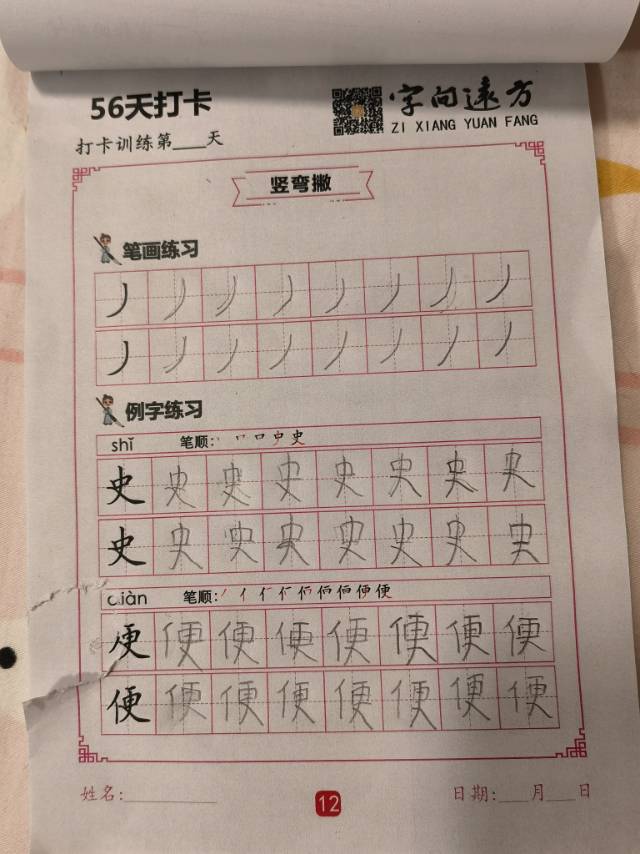 56天打卡
字向远方
ZI XIANG YUAN FANG
打卡训练第___天
竖弯撇
笔画练习
丿 丿 丿 丿 丿 丿 丿 丿
丿 丿 丿 丿 丿 丿 丿 丿
例字练习
shǐ 笔顺: 史
史 史 史 史 史 史 史 史
史 史 史 史 史 史 史 史
iàn 笔顺: 便
便 便 便 便 便 便 便
便 便 便 便 便 便 便 便
姓名:_________ 12 日期:___月___日